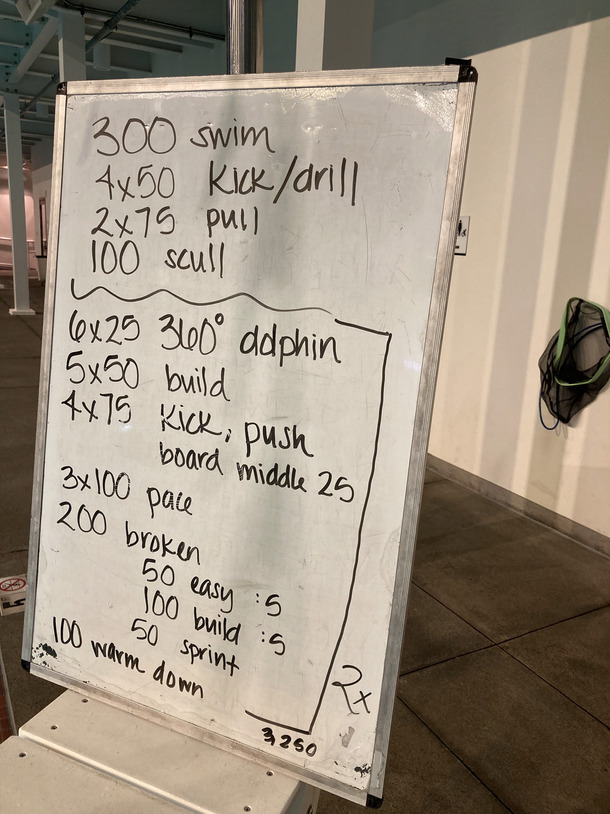 300 swim
4x50 kick/drill
2x75 pull
100 scull
6x25 360° dolphin
5x50 build
4x75 kick, push
board middle 25
3x100 pace
200 broken
50 easy :5
100 build :5
50 sprint
100 warm down
2x
3,250